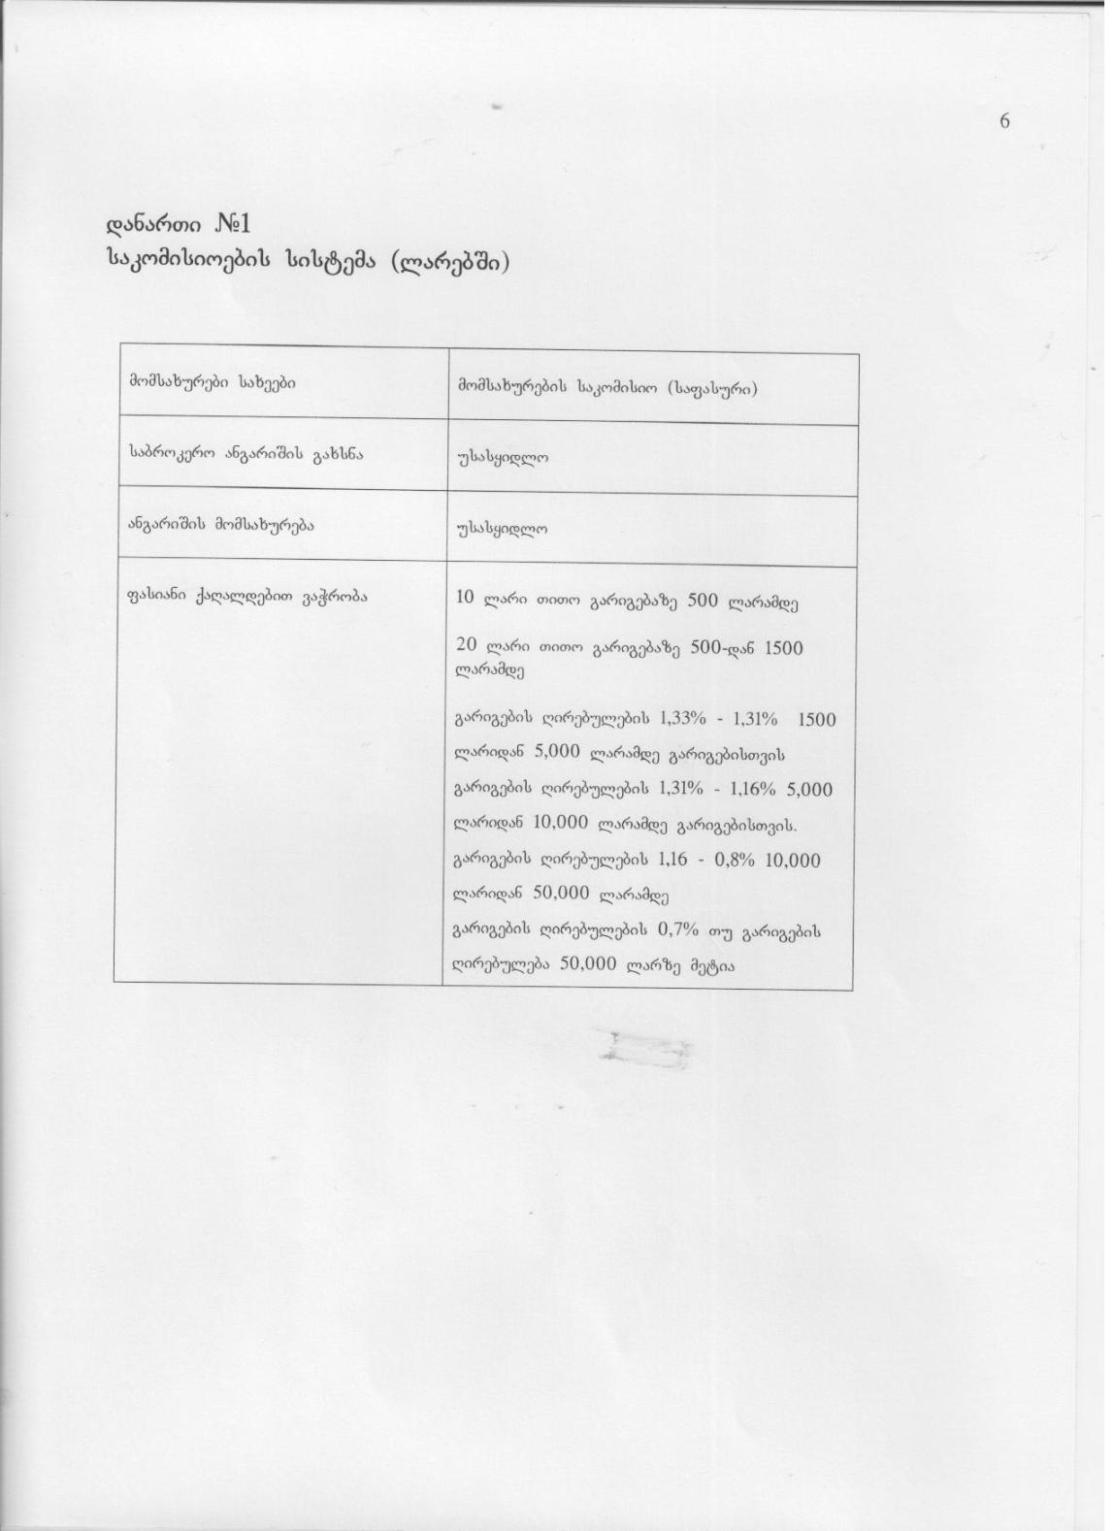 6
დანართი №1
საკომისიოების სისტემა (ლარებში)
მომსახურები სახეები
მომსახურების საკომისიო (საფასური)
საბროკერო ანგარიშის გახსნა
უსასყიდლო
ანგარიშის მომსახურება
უსასყიდლო
ფასიანი ქაღალდებით ვაჭრობა
10 ლარი თითო გარიგებაზე 500 ლარამდე
20 ლარი თითო გარიგებაზე 500-დან 1500
ლარამდე
გარიგების ღირებულების 1,33% - 1,31% 1500
ლარიდან 5,000 ლარამდე გარიგებისთვის
გარიგების ღირებულების 1,31% - 1,16% 5,000
ლარიდან 10,000 ლარამდე გარიგებისთვის.
გარიგების ღირებულების 1,16 - 0,8% 10,000
ლარიდან 50,000 ლარამდე
გარიგების ღირებულების 0,7% თუ გარიგების
ღირებულება 50,000 ლარზე მეტია